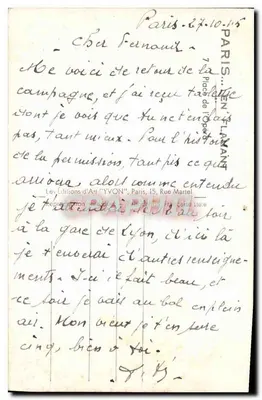 Paris - 27-10-15
Cher Fernand -
Me voici de retour de la
campagne, et j'ai reçu ta lettre
dont je vois que tu ne t'en fais
pas, tant mieux. Pour l'histoire
de la permission, tant pis ce qui
arrivera, alors comme entendu
je t'attendrai soir
à la gare de Lyon, d'ici là
je t'envoirai d'autres renseigne-
ments. Ici il fait beau, et
ce soir je vais au bal en plein
air. Mon vieux je t'en serre
cinq, bien à toi.
PARIS... EN FLANANT
7 - Place de l'Opéra
Les Editions d'Art "YVON", Paris, 15, Rue Martel